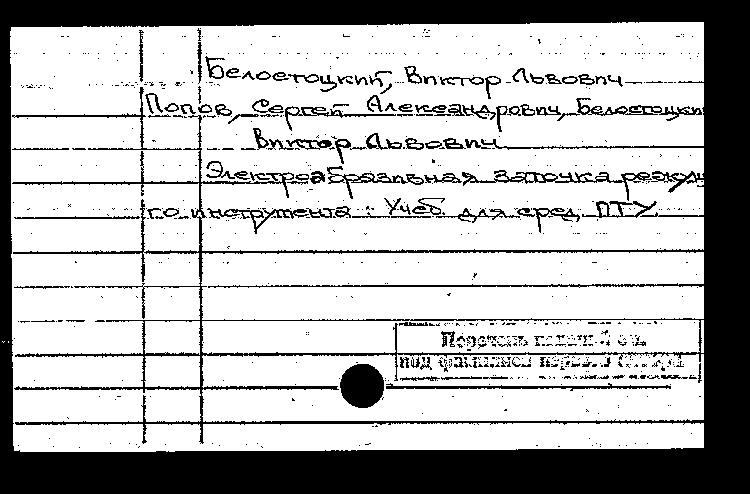 Белостоцкий, Виктор Львович
Попов, Сергей Александрович, Белостоцкий
Виктор Львович
Электроабразивная заточка режущ
го инструмента : Учеб. для сред. ПТУ
Перечень
под фамилией